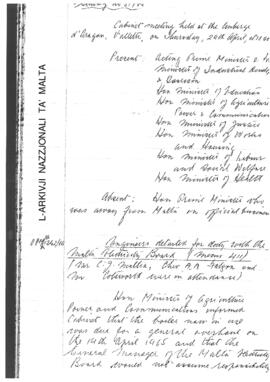 Cabinet meeting held at the Auberge
d'Aragon, Valletta, on Thursday, 20th April, at
Present: Acting Prime Minister &
Minister of Industrial
& Tourism
Hon Minister of Education
Hon Minister of Agriculture
Power & Communications
Hon Minister of Justice
Hon Minister of Works
and Housing
Hon Minister of Labour
and Social Welfare
Hon Minister of Health
Absent: Hon Prime Minister who
was away from Malta on official
Engineers detailed for duty with the
Malta Electricity Board (Memo 411)
(Mr C.J. Mallia, Chev A.A. Falzon and
Mr were in attendance)
Hon Minister of Agriculture
Power and Communications informed
Cabinet that the boiler now in use
was due for a general overhaul on
the 14th April 1965 and that the
General Manager of the Malta Electricity
Board would not assume responsibility
L-ARKIVJI NAZZJONALI TA' MALTA